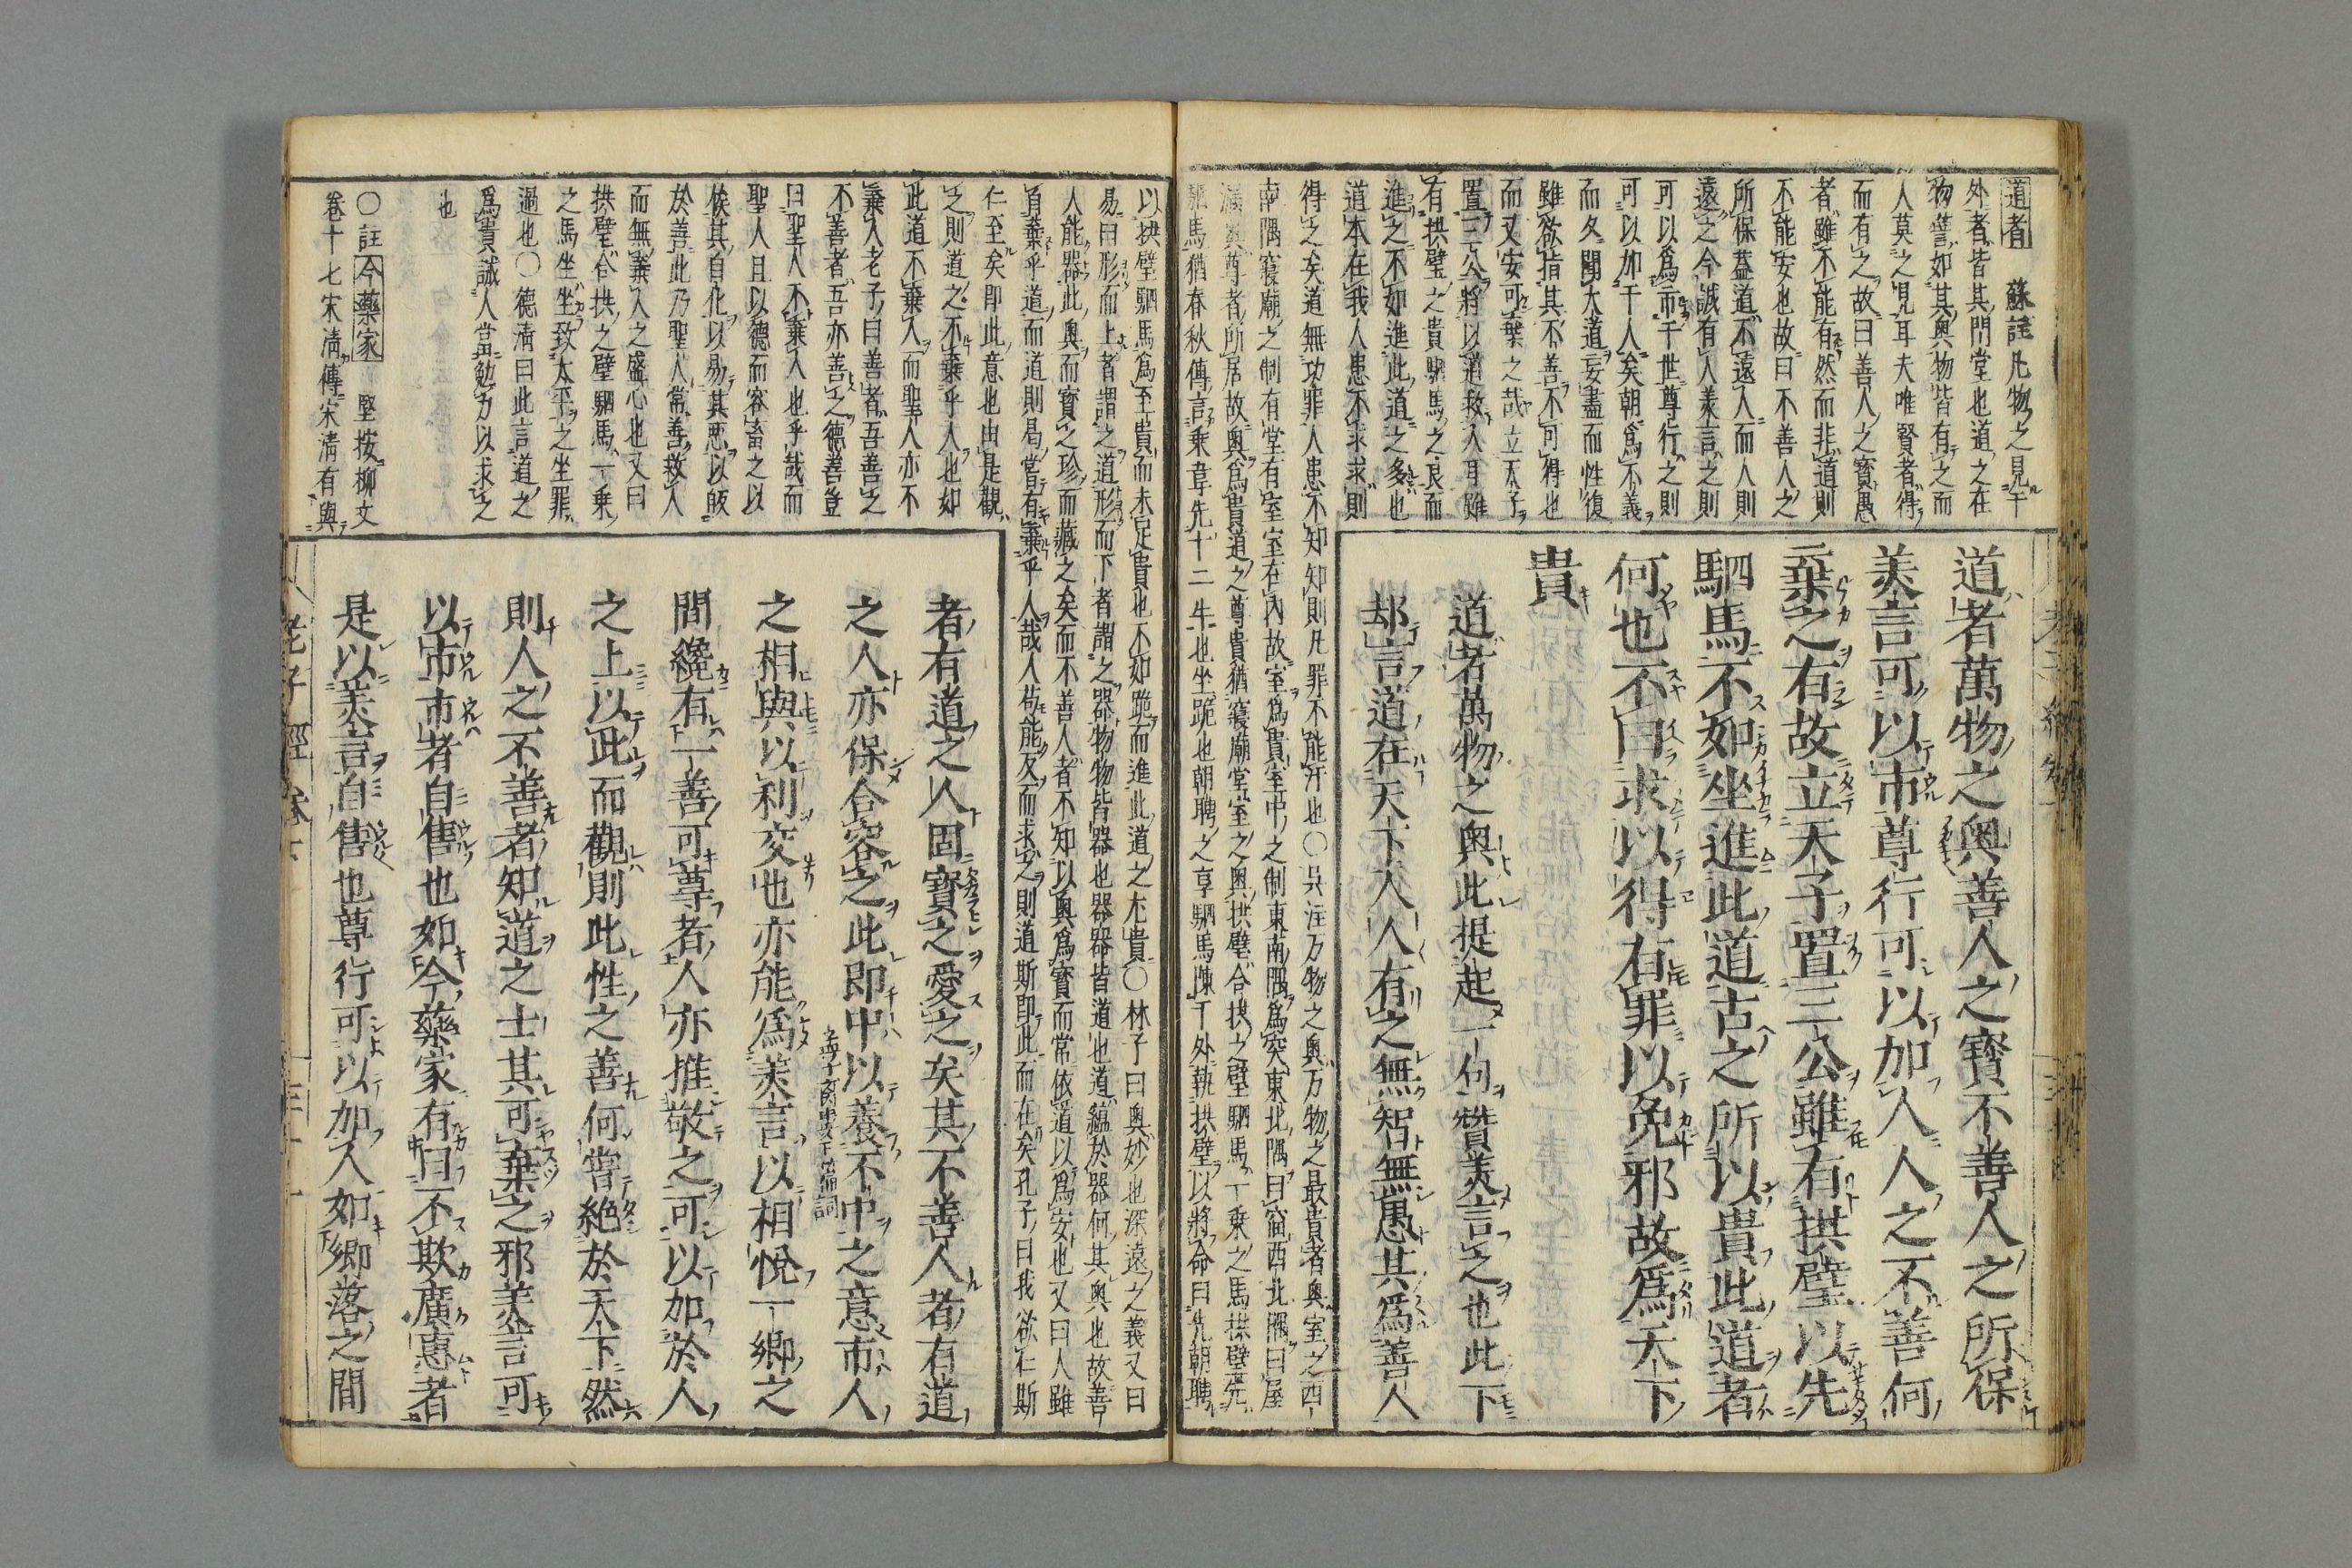 道者萬物之奧善人之寶不善人之所保
美言可以市尊行可以加人人之不善何
棄之有故立天子置三公雖有拱璧以先
駟馬不如坐進此道古之所以貴此道者
何也不曰求以得有罪以免邪故爲天下
貴
道者萬物之奧此提起一句贊美言之也此下
却言道在天下人人有之無智無愚其爲善人
道者 蘇註凡物之見于
外者皆其門堂也道之在
物譬如其奧物皆有之而
人莫之見耳夫唯賢者得
而有之故曰善人之寶愚
者雖不能有然而非道則
不能安也故曰不善人之
所保蓋道不遠人而人則
遠之今誠有人美言之則
可以爲市于世尊行之則
可以加于人矣朝爲不義
而夕聞大道妄盡而性復
雖欲指其不善不可得也
而又安可棄之哉立天子
置三公將以道救人耳雖
有拱璧之貴駟馬之良而
進之不如進此道之多也
道本在我人患不求求則
得之矣道無功罪人患不知知則凡罪不能汙也〇吳注万物之奧万物之最貴者奧室之西
南隅寢廟之制有堂有室室在內故室爲貴室中之制東南隅爲窔東北隅曰宧西北隅曰屋
漏奧尊者所居故奧爲貴道之尊貴猶寢廟堂室之奧拱璧合拱之璧駟馬一乘之馬拱璧先
駟馬猶春秋傳言乘韋先十二牛也坐跪也朝聘之享駟馬陳于外執拱璧以將命曰先朝聘
以拱璧駟馬爲至貴而未足貴也不如跪而進此道之尤貴〇林子曰奧妙也深遠之義又曰
易曰形而上者謂之道形而下者謂之器物物皆器也器器皆道也道蘊於器何其奧也故善
人能器此奧而寶之珍而藏之矣而不善人者不知以奧爲寶而常依道以爲安也又曰人雖
自棄乎道而道則曷嘗有棄乎人哉人苟能反而求之則道斯即此而在矣孔子曰我欲仁斯
仁至矣即此意也由是觀
之則道之不棄乎人也如
此道不棄人而聖人亦不
棄人老子曰善者吾善之
不善者吾亦善之德善豈
曰聖人不棄人也乎哉而
聖人且以德而容畜之以
俟其自化以易其惡以皈
於善此乃聖人常善救人
而無棄人之盛心也又曰
拱璧合拱之璧駟馬一乘
之馬坐坐致太平之坐罪
過也〇德清曰此言道之
爲貴誡人當勉力以求之
也
〇註今藥家 堅按柳文
卷十七宋清傳宋清有與
者有道之人固寶之愛之矣其不善人者有道
之人亦保合容之此即中以養不中之意市人
孟子离婁下篇詞
之相與以利交也亦能爲美言以相悅一鄉之
間纔有一善可尊者人亦推敬之可以加於人
之上以此而觀則此性之善何嘗絕於天下然
則人之不善者知道之士其可棄之邪美言可
以市市者自售也如今藥家有曰不欺廣惠者
是以美言自售也尊行可以加人如鄉落之間
老子經 卷下